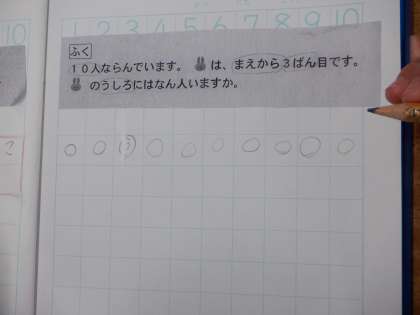 10
1 2 3 4 5 6 7 8 9 10
ふく
10人ならんでいます。 は、まえから3ばん目です。
のうしろにはなん人いますか。